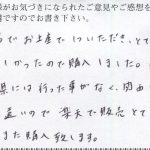 様がお気づきになられたご意見やご感想を
ですのでお書き下さい。
でお土産でいただき、とて
しかったので購入しました。
県には行った事がなく、関西
遠いので楽天で販売とて
また購入致します。